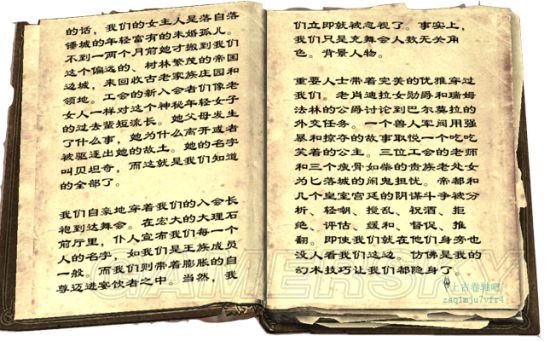 的话，我们的女主人是落自落
锤城的年轻富有的未婚孤儿。
不到一两个月前她才搬到我们
这个偏远的、树林繁茂的帝国
边城，来回收古老家族庄园和
领地。工会的新入会者们像老
女人一样对这个神秘年轻女子
的过去蜚短流长。她父母发生
了什么事，她为什么离开或者
被驱逐出她的故土。她的名字
叫贝坦奇，而这就是我们知道
的全部了。
我们自豪地穿着我们的入会长
袍到达舞会。在宏大的大理石
前厅里，仆人宣布我们每一个
人的名字，如我们是王族成员
一般。而我们则带着膨胀的自
尊迈进宴饮者之中。当然，我
们立即就被忽视了。事实上，
我们只是充舞会人数无关角
色。背景人物。
重要人士带着完美的优雅穿过
我们。老肖迪拉女勋爵和瑞姆
法林的公爵讨论到巴尔莫拉的
外交任务。一个兽人军阀用强
暴和掠夺的故事取悦一个吃吃
笑着的公主。三位工会的老师
和三个瘦骨如柴的贵族老处女
为匕落城的闹鬼担忧。帝都和
几个皇室宫廷的阴谋斗争被分
析、轻朝、搅乱、祝酒、拒
绝、评估、缓和、督促、推
翻。即使我们就在他们身旁也
没人看我们这边。仿佛是我的
幻术技巧让我们都隐身了。
上古卷轴吧
zsq1mju7vfr4
GAMERSKY